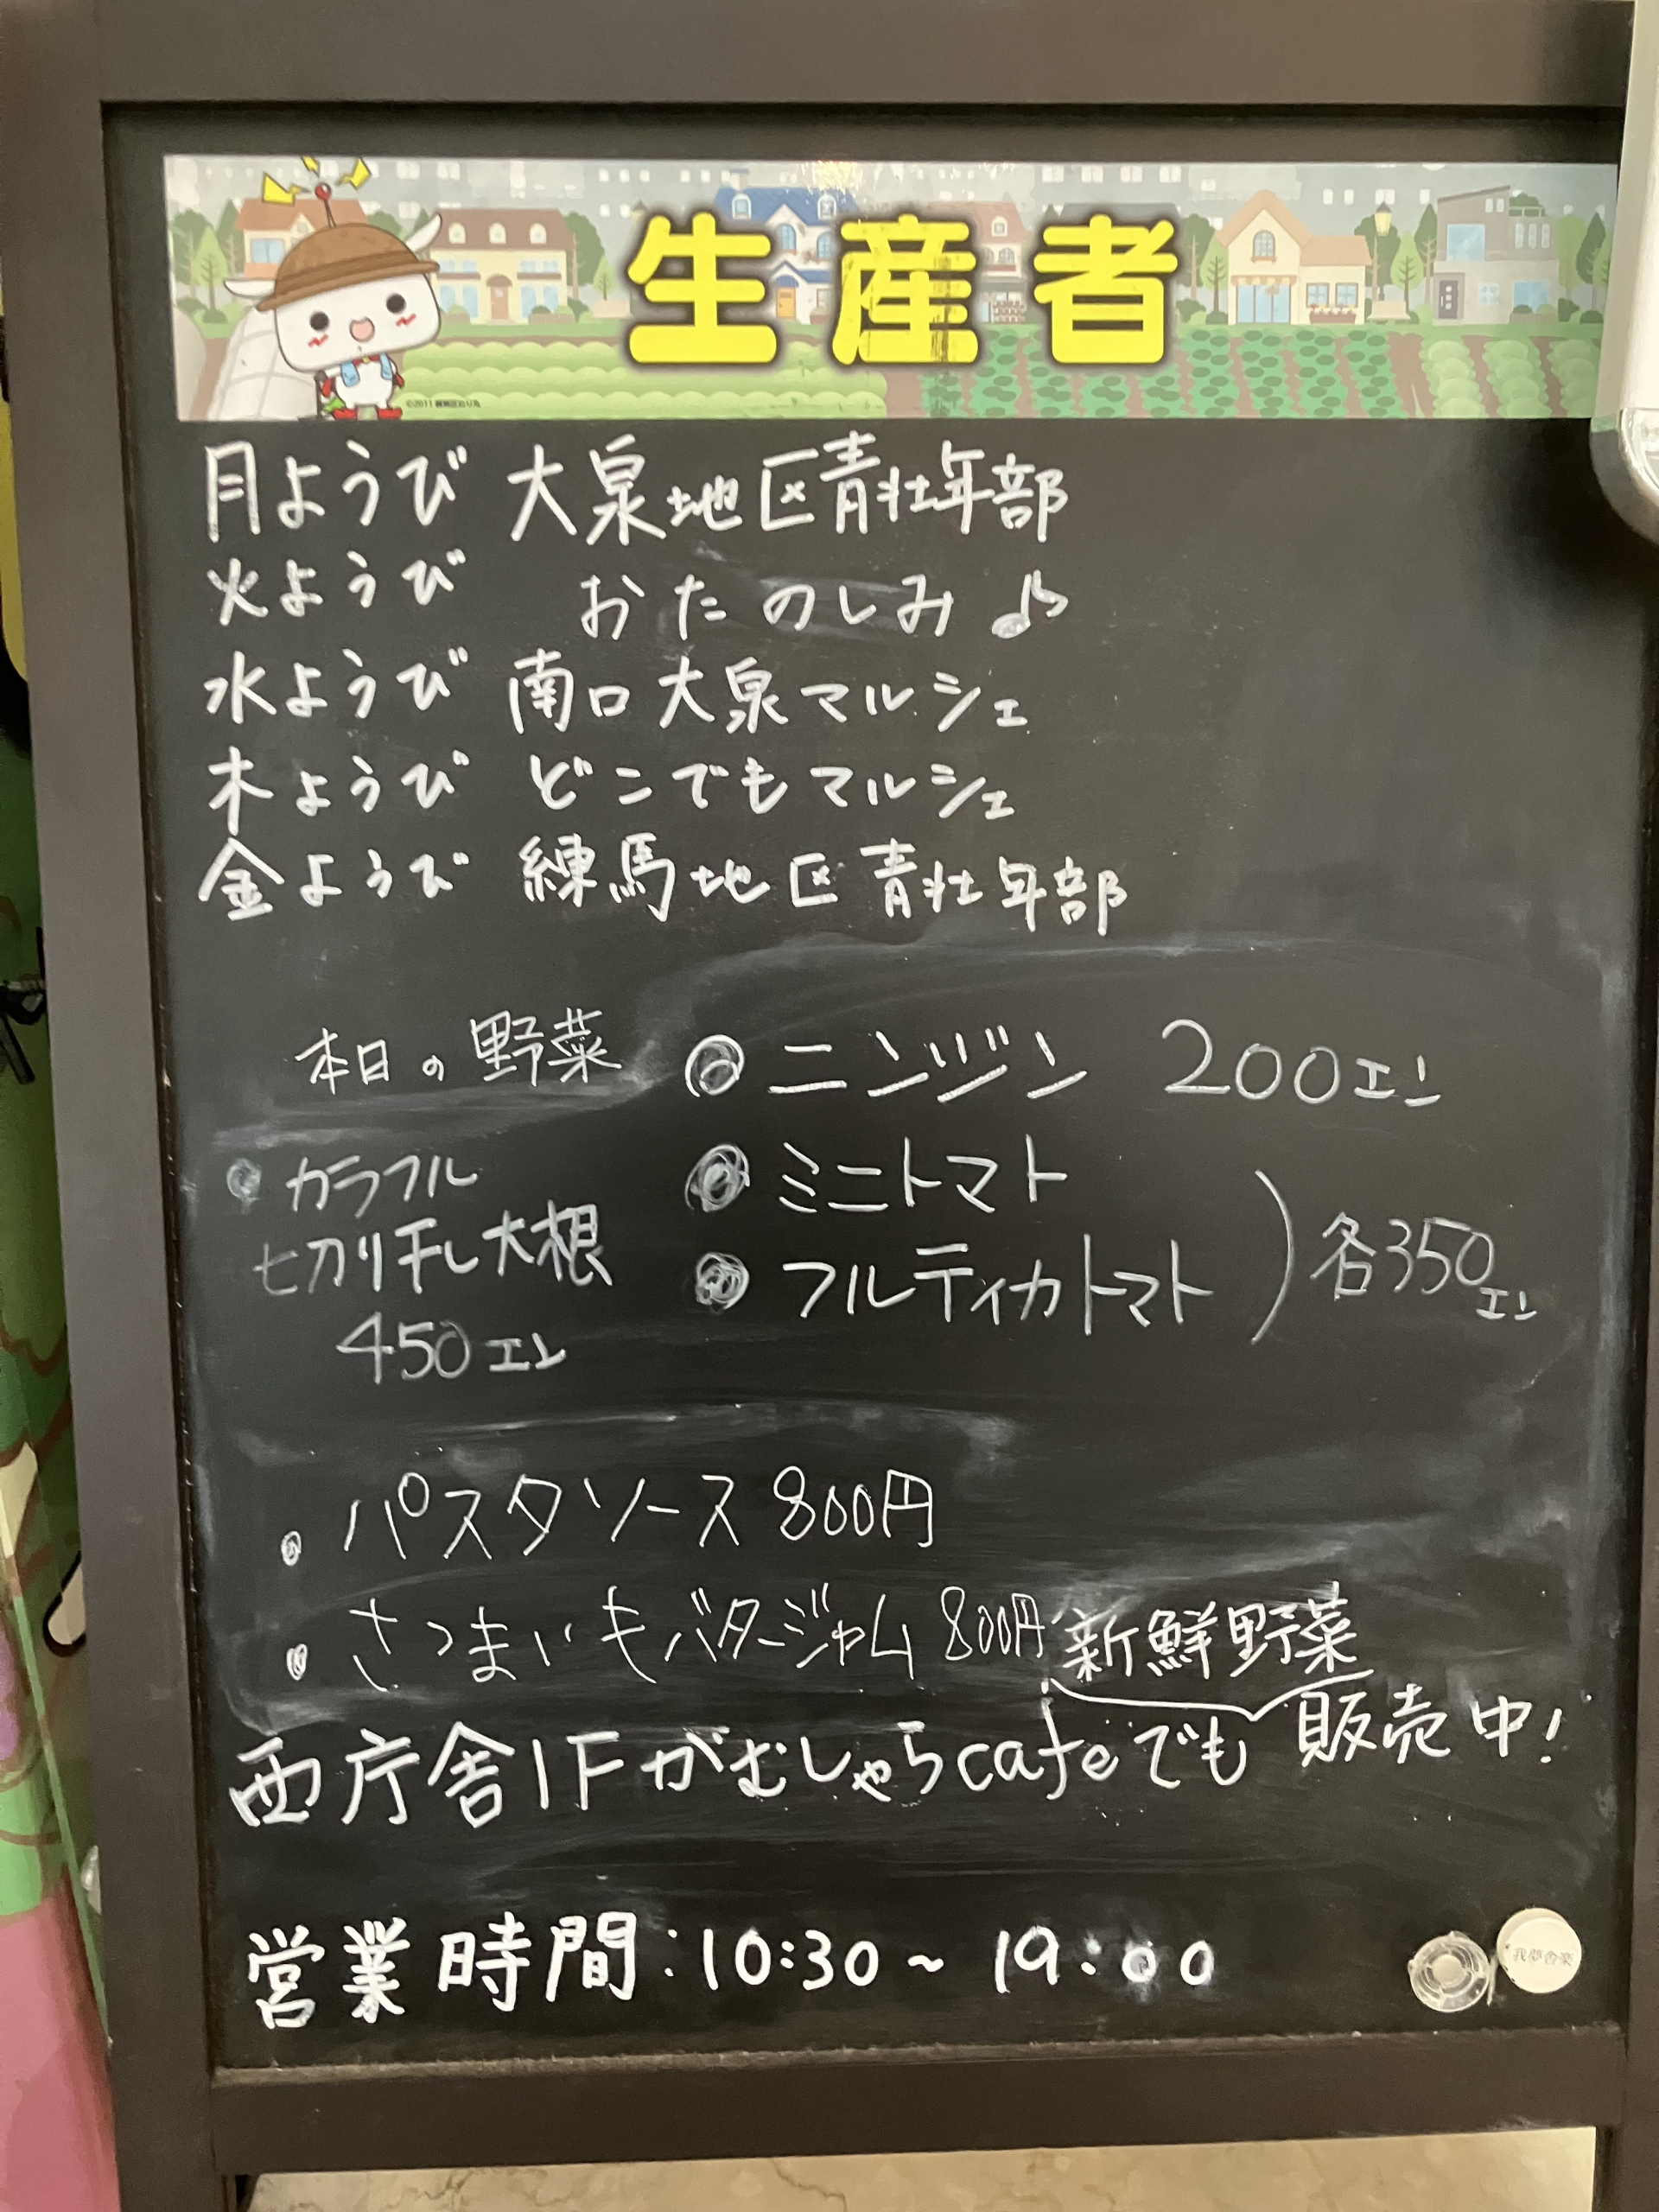 生産者
©2011 練馬区ねり丸
月ようび 大泉地区青壮年部
火ようび おたのしみ♪
水ようび 南口大泉マルシェ
木ようび どこでもマルシェ
金ようび 練馬地区青壮年部
本日の野菜
◎ ニンジン 200エン
● ミニトマト
● フルティカトマト ) 各350エン
● カラフル
切り干し大根
450エン
・パスタソース 800円
・さつまいもバタージャム 800円
新鮮野菜
西庁舎1Fがむしゃらcafeでも 販売中!
営業時間:10:30~19:00
我夢舎楽